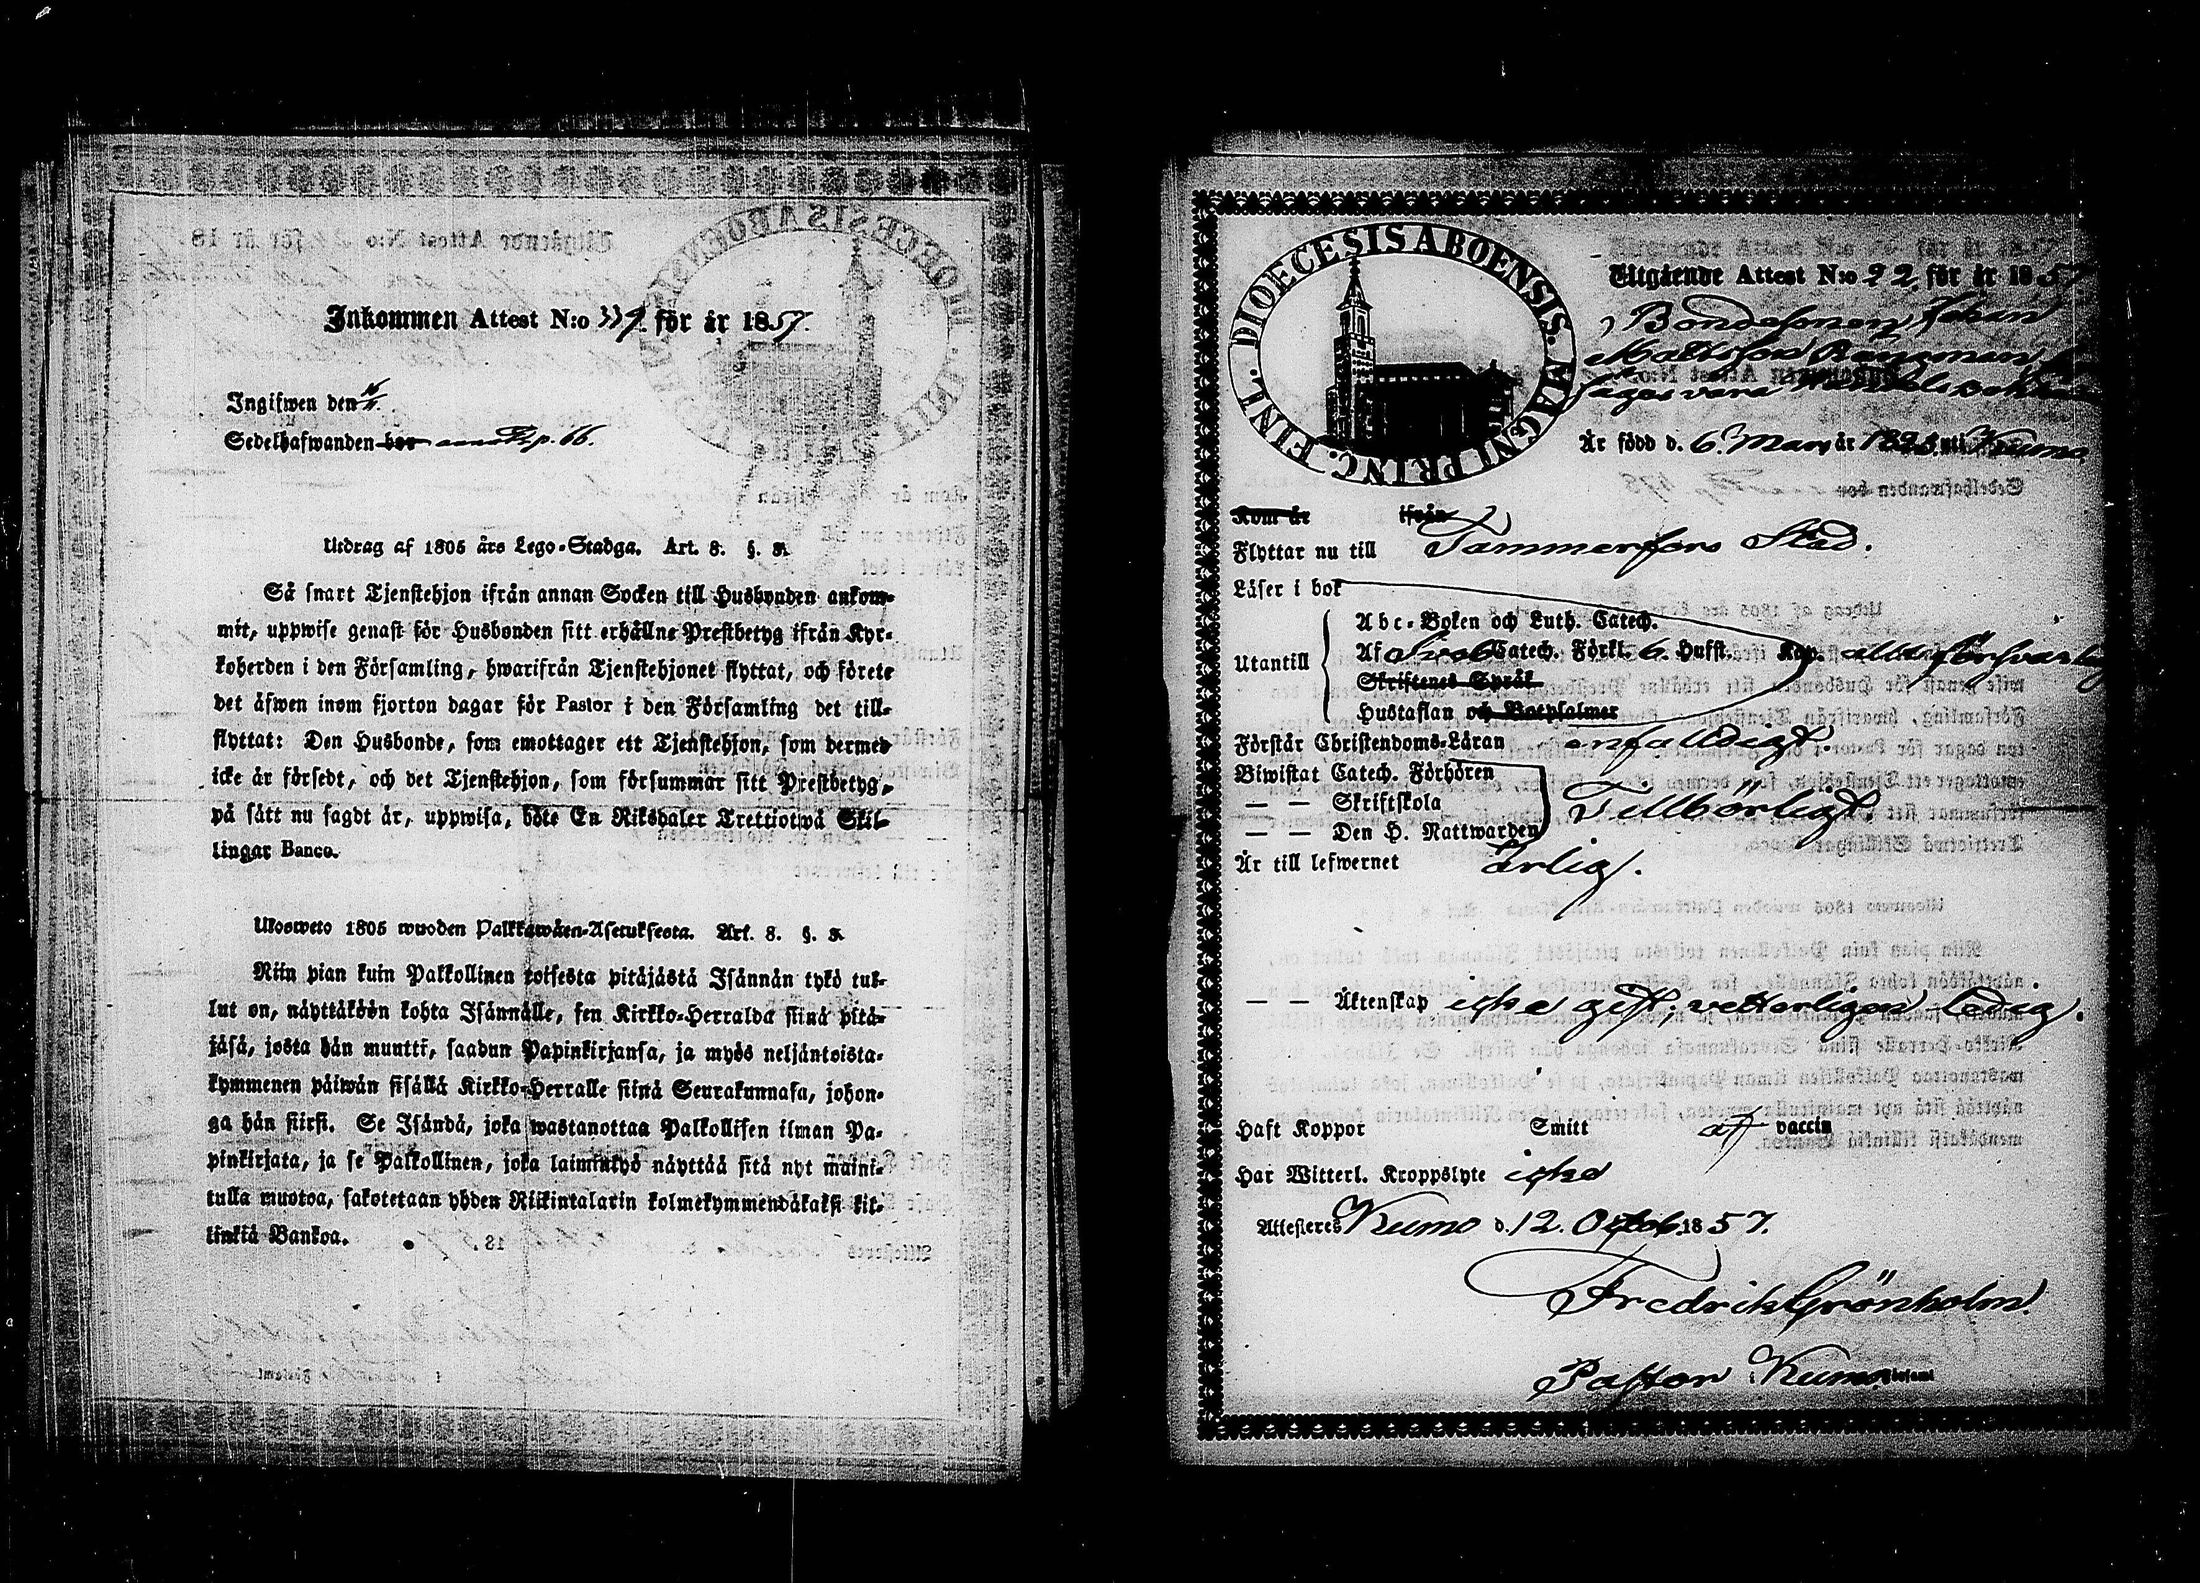 Inkommen Attest N:o 339 för år 1857.
Ingifwen den 16/11.
Sedelhafwanden bor p. 66.
Utdrag af 1805 års Lego-Stadga. Art. 8. §. 3.
Så snart Tjenstehjon ifrån annan Socken till Husbonden ankom-
mit, uppwise genast för Husbonden sitt erhållne Prestbetyg ifrån Kyr-
koherden i den Församling, hwarifrån Tjenstehjonet flyttat, och förete
det äfwen inom fjorton dagar för Pastor i den Församling det till-
flyttat: Den Husbonde, som emottager ett Tjenstehjon, som dermed
icke är försedt, och det Tjenstehjon, som försummar sitt Prestbetyg,
på sätt nu sagdt är, uppwisa, böte En Riksdaler Trettiotwå Skil-
lingar Banco.
Ulosweto 1805 wuoden Palkkawäen-Asetuksesta. Art. 8. §. 3.
Niin pian kuin Palkollinen toisesta pitäjästä Isännän tykö tul-
lut on, näyttäköön kohta Isännälle, sen Kirkko-Herralda siinä pitä-
jäsä, josta hän muutti, saadun Papinkirjansa, ja myös neljäntoista-
kymmenen päiwän sisällä Kirkko-Herralle siinä Seurakunnasa, johon-
ga hän siirsi. Se Isändä, joka wastanottaa Palkollisen ilman Pa-
pinkirjata, ja se Palkollinen, joka laimintyö näyttää sitä nyt maini-
tulla muotoa, sakotetaan yhden Riikintalarin kolmekymmendäkaksi kil-
linkiä Bankoa.
DIOECESIS ABOENSIS. MAGNI PRINC. FINL.
Utgående Attest N:o 22 för år 1857
Bondesonen Johan
Mattsson
sages vara
Är född d. 6 Mars år uti Kumo.
Kom år ifrån
Flyttar nu till Tammerfors Stad.
Läser i bok
Abc-Boken och Luth. Catech.
Utantill Af Sveb. Catech. Förkl. 6. Hufst. Kap. allt försvarlig
Skriftenes Språk
Hustaflan och Botpsalmer
Förstår Christendoms-Läran enfaldigt.
Biwistat Catech. Förhören
— — Skriftskola Tillbörligt.
— — Den H. Nattwarden
Är till lefwernet ärlig.
— — Äktenskap icke gift; vetterligen ledig.
Haft Koppor Smitt af vaccin
Har Witterl. Kroppslyte icke
Attesteres Kumo d. 12. Octob. 1857.
Fredrik Grönholm.
Pastor i Kumo Församl